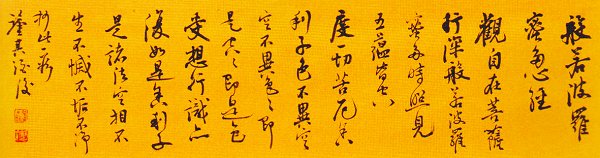 般若波羅
蜜多心經
觀自在菩薩
行深般若波羅
蜜多時照見
五蘊皆空
度一切苦厄舍
利子色不異空
空不異色々即
是空々即是色
受想行識亦
復如是舍利子
是諸法空相不
生不滅不垢不淨
抄此一